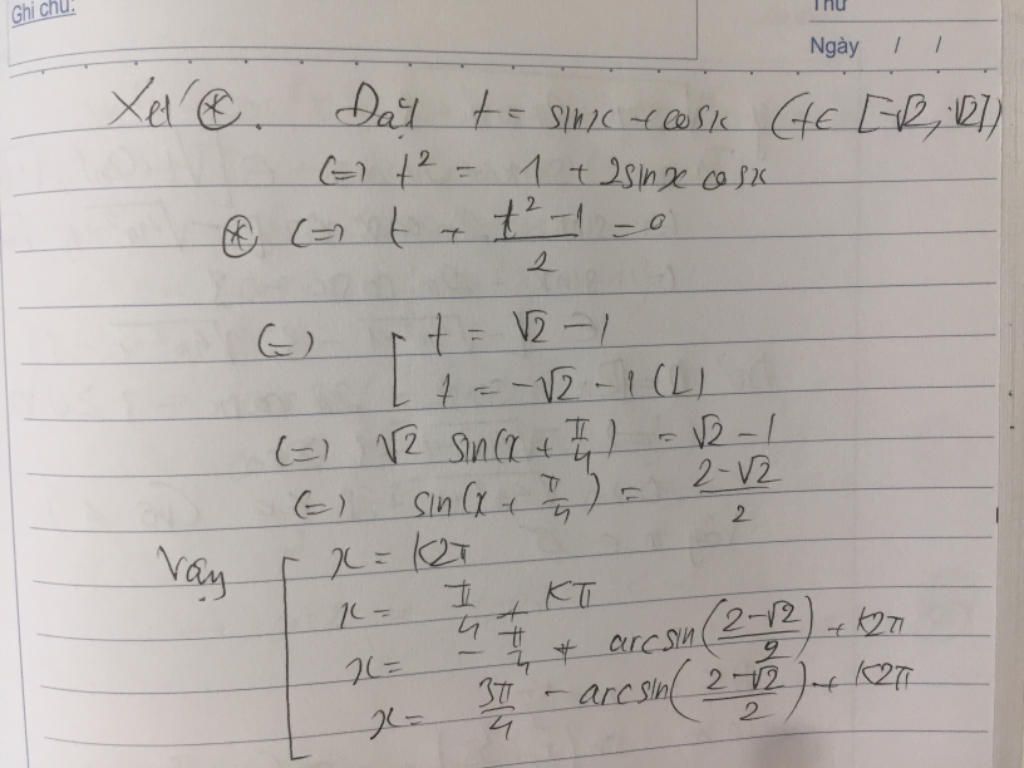 Ghi chú:
Thứ
Ngày / /
Xét ⊛. Đặt t = sinx + cosx (t ∈ [-√2, √2])
(=) t² = 1 + 2sinx cosx
⊛ (=) t + (t² - 1)/2 = 0
(=) [ t = √2 - 1
t = -√2 - 1 (L)
(=) √2 sin(x + π/4) = √2 - 1
(=) sin(x + π/4) = (2-√2)/2
Vậy [ x = k2π
x = π/4 + kπ
x = -π/4 + arcsin((2-√2)/2) + k2π
x = 3π/4 - arcsin((2-√2)/2) + k2π